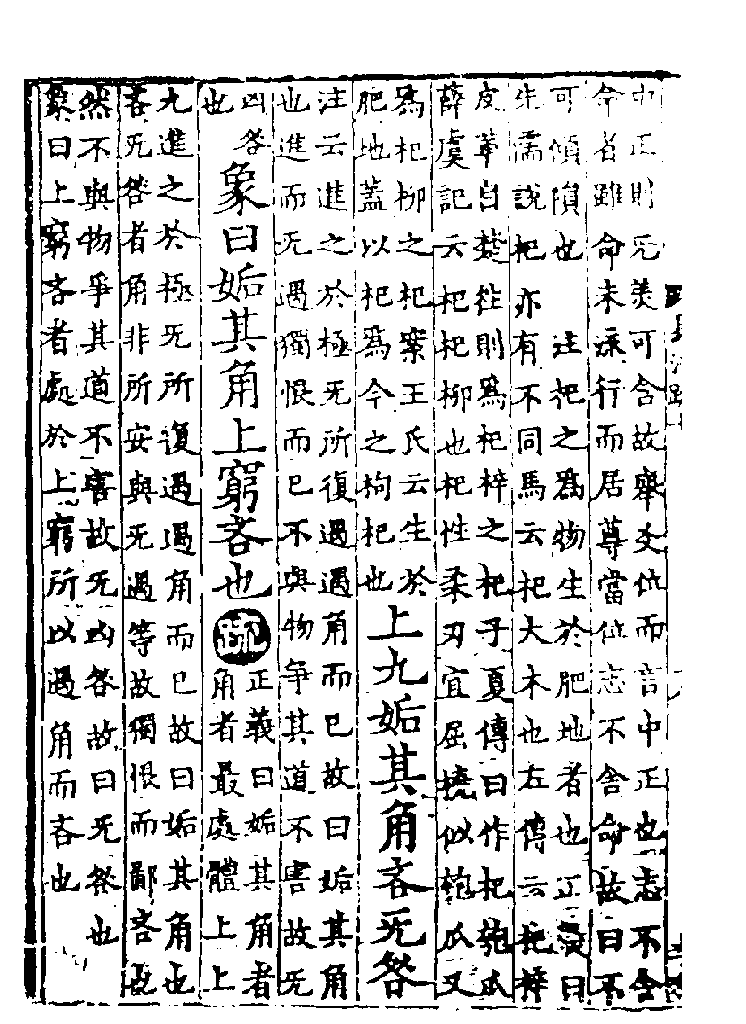 中正則无美可含故舉爻位而言中正也志不舍
命者雖命未流行而居尊當位志不舍命故曰不
可傾隕也　注杞之為物生於肥地者也正義曰
先儒說杞亦有不同馬云杞大木也左傳云杞梓
皮革自楚徃則為杞梓之杞子夏傳曰作杞匏瓜
薛虞記云杞杞柳也杞性柔刃宜屈撓似匏瓜又
為杞柳之杞案王氏云生於
肥地蓋以杞為今之枸杞也
上九姤其角吝无咎
注云進之於極无所復遇遇角而已故曰姤其角
也進而无遇獨恨而已不與物爭其道不害故无
凶咎
也
象曰姤其角上窮吝也
疏
正義曰姤其角者
角者最處體上上
九進之於極无所復遇遇角而已故曰姤其角也
吝无咎者角非所安與无遇等故獨恨而鄙吝也
然不與物爭其道不害故无凶咎故曰无咎也
象曰上窮吝者處於上窮所以遇角而吝也